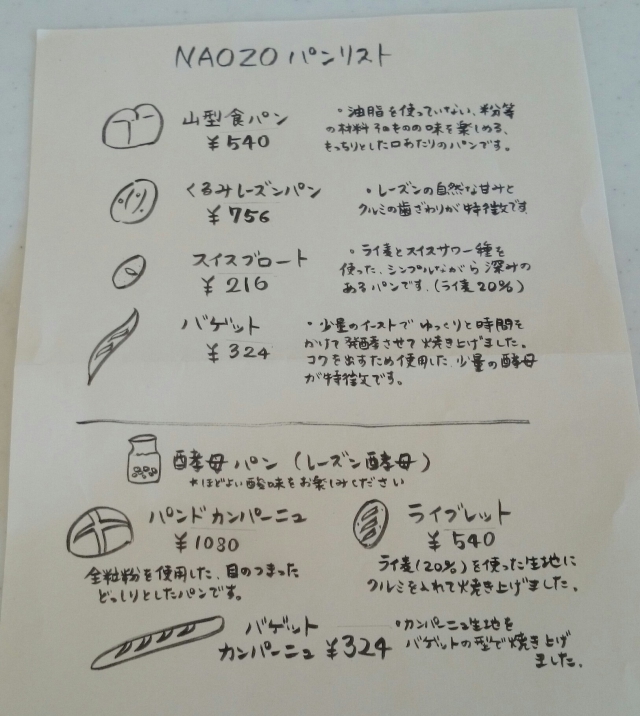 NAOZO パンリスト
山型食パン
¥540
・油脂を使っていない、粉等
の材料そのものの味を楽しめる、
もっちりとした口あたりのパンです。
くるみレーズンパン
¥756
・レーズンの自然な甘みと
クルミの歯ざわりが特徴です
スイスブロート
¥216
・ライ麦とスイスサワー種を
使った、シンプルながら深みの
あるパンです。(ライ麦20%)
バゲット
¥324
・少量のイーストでゆっくりと時間を
かけて発酵させて焼き上げました。
コクを出すため使用した、少量の酵母
が特徴です。
酵母パン(レーズン酵母)
*ほどよい酸味をお楽しみください
パンドカンパーニュ
¥1080
全粒粉を使用した、目のつまった
どっしりとしたパンです。
ライブレット
¥540
ライ麦(20%)を使った生地に
クルミを入れて焼き上げました。
バゲット
カンパーニュ ¥324
・カンパーニュ生地を
バゲットの型で焼き上げ
ました。